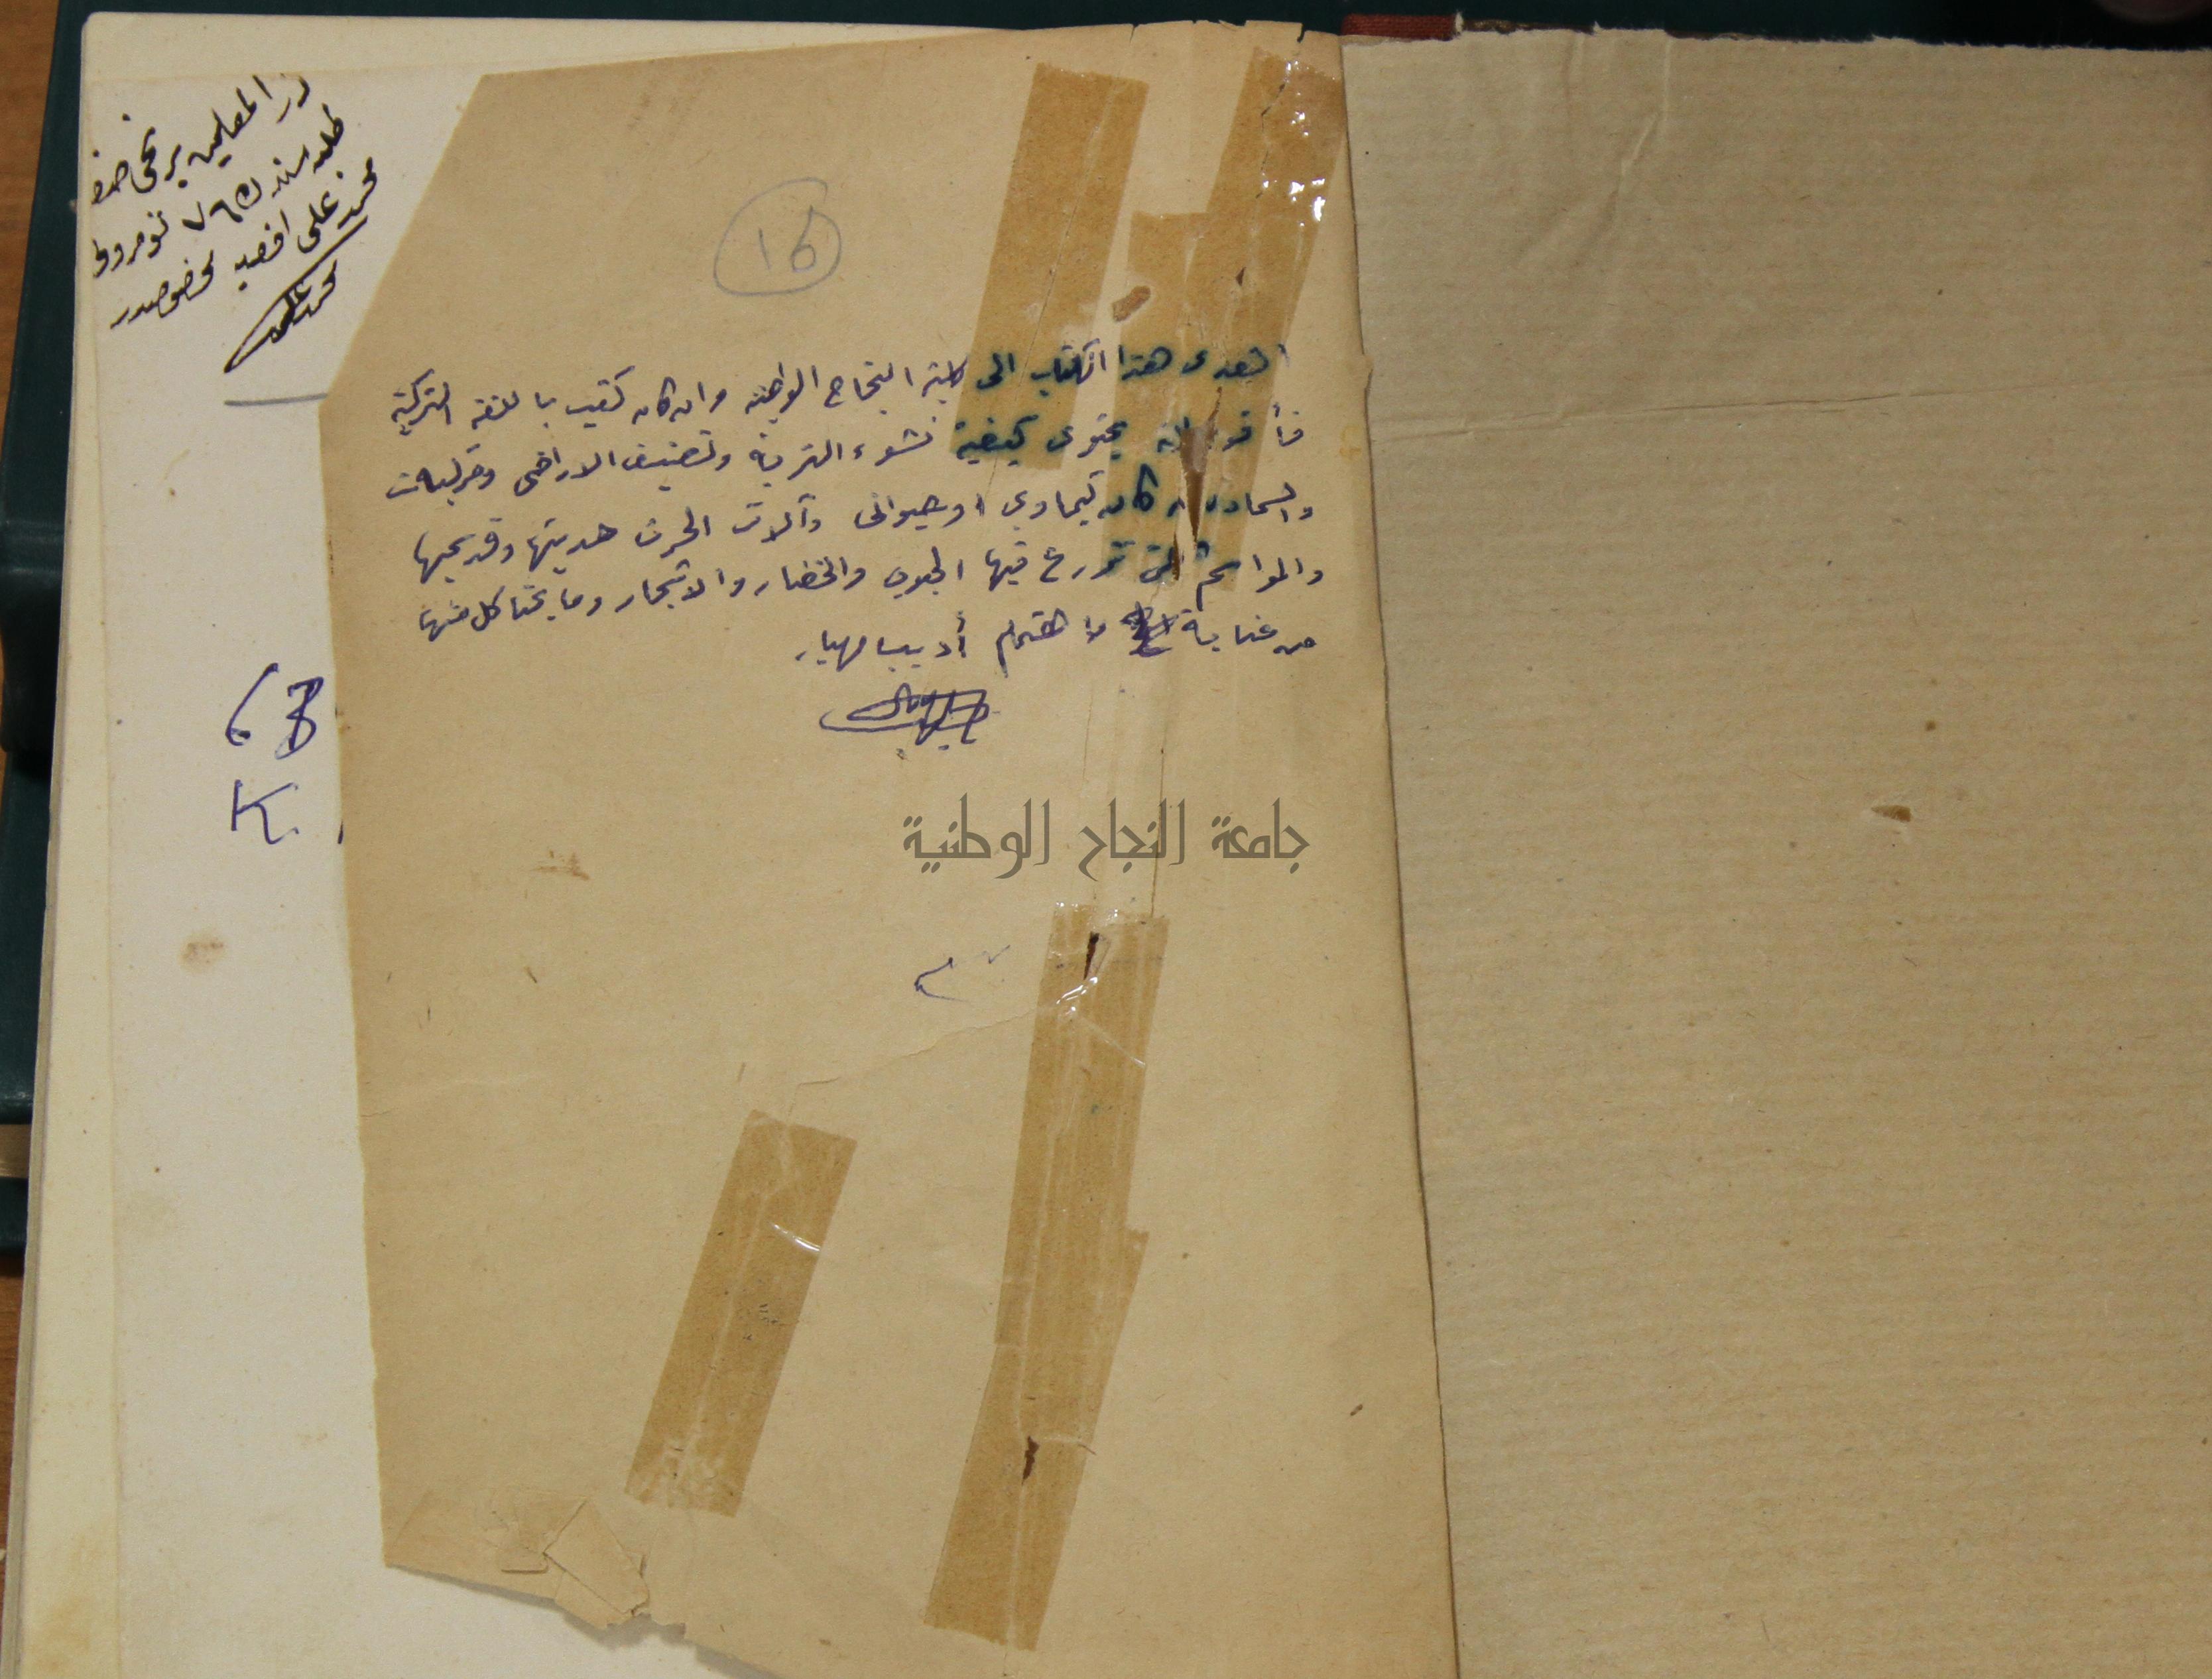 دار المعلمين
طلبه سندن ٧٦٥ نومرولى
محمد على افندى
محمد على
16
اهدى هذا الكتاب الى كلية النجاح الوطنيه وان كان كتب باللغة التركية
فأقول انه يحتوى كيفية نشوء التربة وتصنيف الاراضى وتركيبات
والسماد ان كان كيماوي او حيوانى وآلات الحرث حديثها وقديمها
والمواسم التى تزرع فيها الحبوب والخضار والاشجار وما يحتاج كل منها
من عناية واهتمام أديب مهيار
63
K.
جامعة النجاح الوطنية